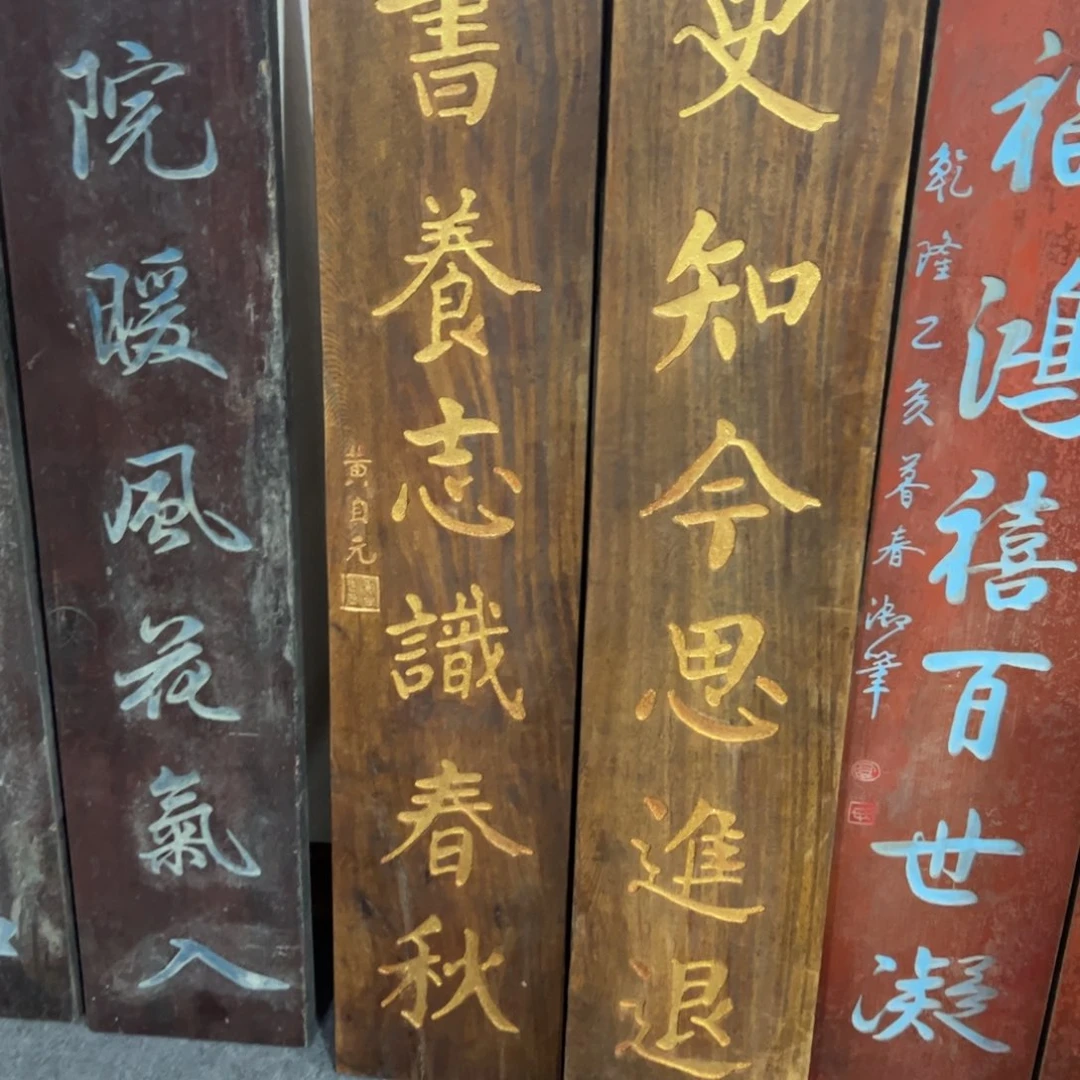 福鴻禧百世凝
乾隆乙亥暮春御筆
史知今思進退
書養志識春秋
黃自元
院暖風花氣入